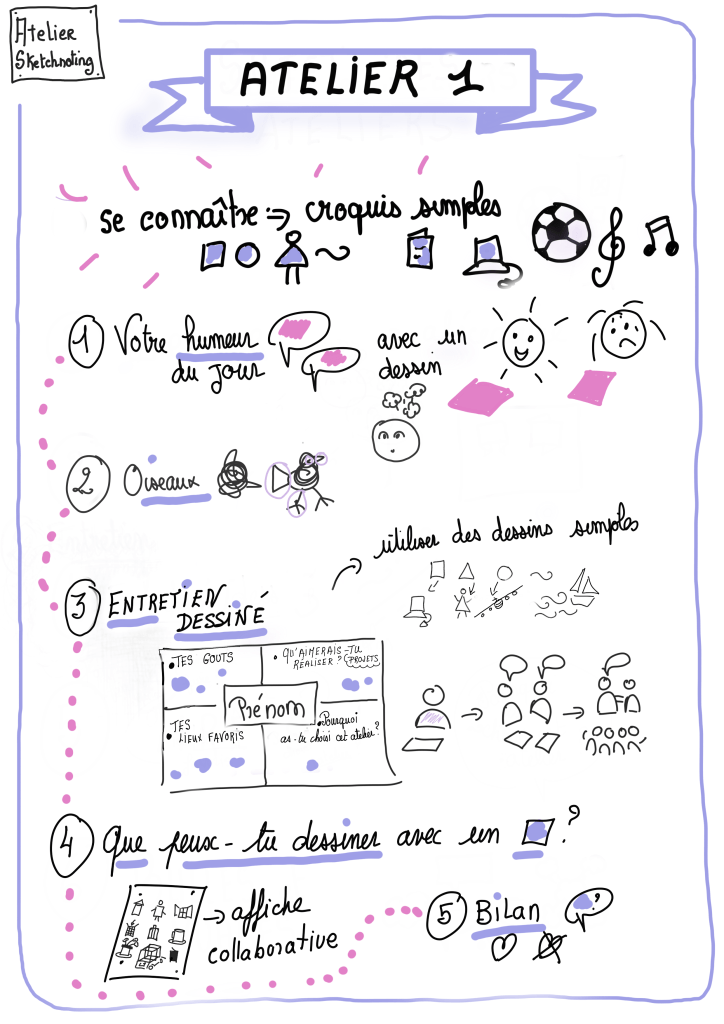 Atelier
Sketchnoting
ATELIER 1
se connaître ⇒ croquis simples
1 Votre humeur
du jour
avec un
dessin
2 Oiseaux
utiliser des dessins simples
3 ENTRETIEN
DESSINÉ
• TES GOUTS
• QU'AIMERAIS-TU
RÉALISER ? (PROJETS
Prénom
• TES
LIEUX FAVORIS
• Pourquoi
as-tu choisi cet atelier ?
4 Que peux-tu dessiner avec un ?
→ affiche
collaborative
5 BiLan
?